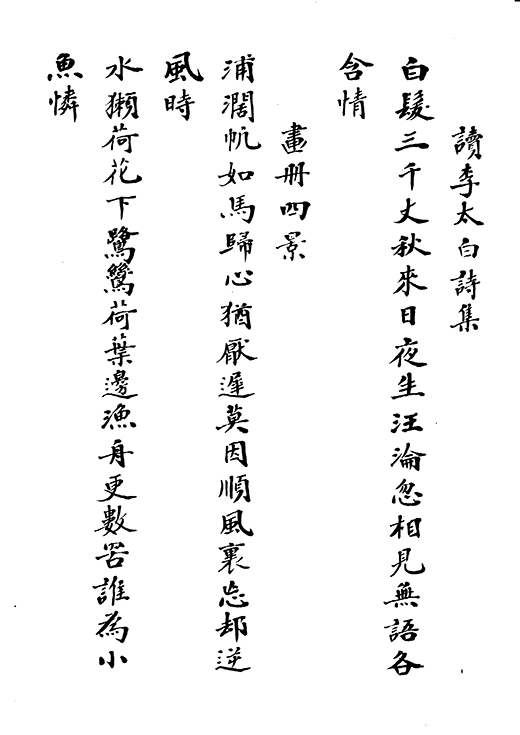 讀李太白詩集
白髮三千丈秋來日夜生汪淪忽相見無語各
含情
畫册四景
浦濶帆如馬歸心猶厭遲莫因順風裏忘却逆
風時
水獺荷花下鷺鷥荷葉邊漁舟更數罟誰為小
魚憐